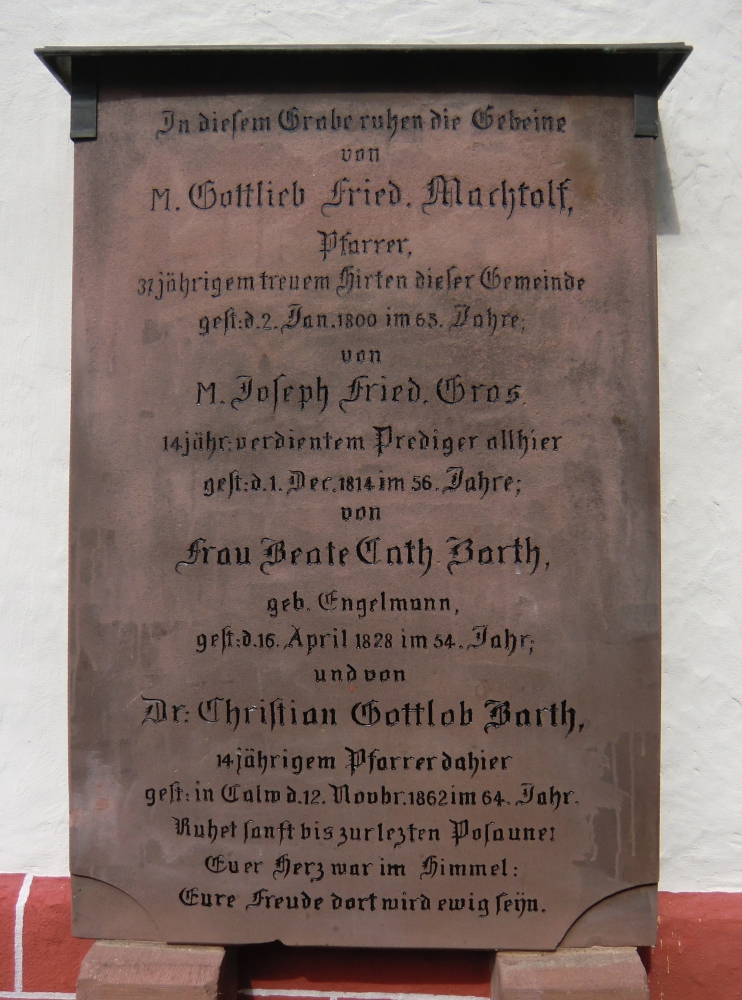 In diesem Grabe ruhen die Gebeine
von
M. Gottlieb Fried. Machtolf,
Pfarrer,
37jährigem treuem Hirten dieser Gemeinde
gest: d. 2. Jan. 1800 im 65. Jahre;
von
M. Joseph Fried. Gros.
14jähr: verdientem Prediger allhier
gest: d. 1. Dec. 1814 im 56. Jahre;
von
Frau Beate Cath. Barth,
geb. Engelmann,
gest: d. 16. April 1828 im 54. Jahr;
und von
Dr: Christian Gottlob Barth,
14jährigem Pfarrer dahier
gest: in Calw d. 12. Novbr. 1862 im 64. Jahr.
Ruhet sanft bis zur lezten Posaune!
Euer Herz war im Himmel:
Eure Freude dort wird ewig seÿn.